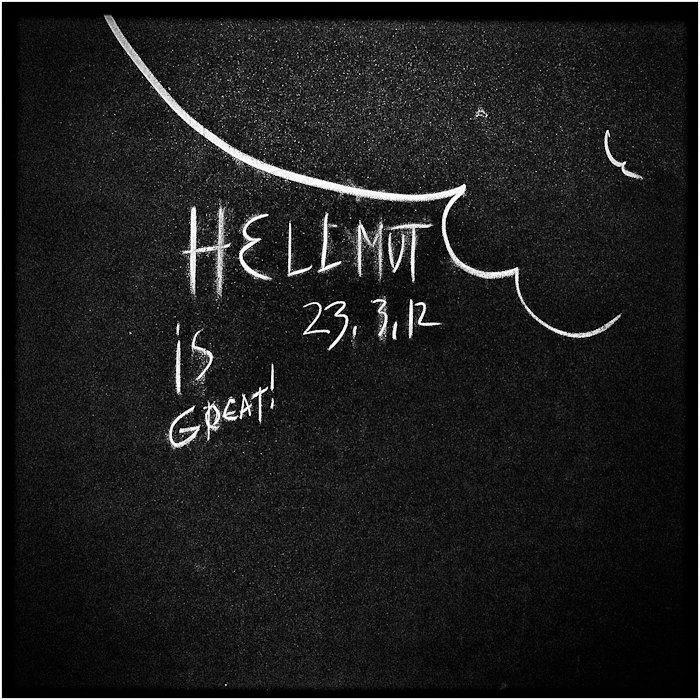 HELLMUT
23.3.12
is
GREAT!